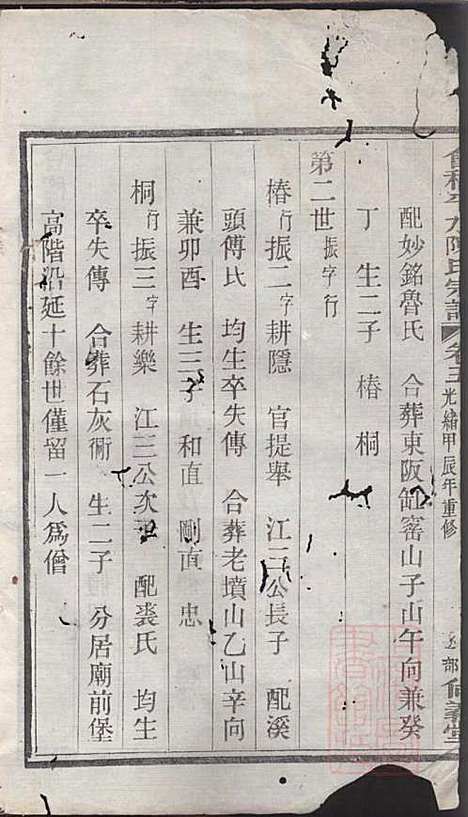 會稽平水陳氏宗譜 卷三 光緒甲辰年重修 尚義堂
配妙銘魯氏 合葬東阪缸窰山子山午向兼癸
丁 生二子 椿 桐
第二世 振字行
椿 行振二 字耕隱 官提舉 江三公長子 配溪
頭傅氏 均生卒失傳 合葬老墳山乙山辛向
兼卯酉 生三子 和直 剛直 忠
桐 行振三 字耕樂 江三公次 配裘氏 均生
卒失傳 合葬石灰衕 生二子 分居廟前堡
高階沿延十餘世僅留一人爲僧